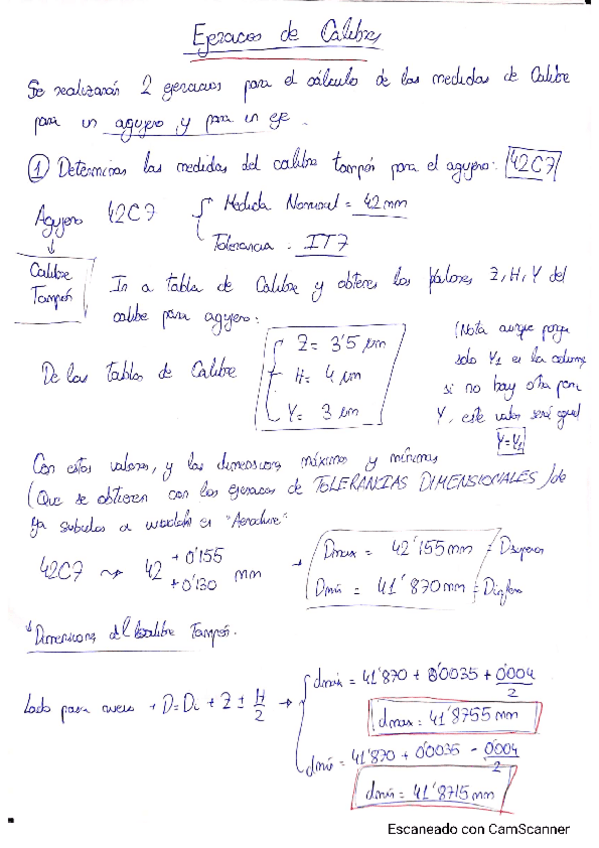 Ejercicios de Calibres
Se realizarán 2 ejercicios para el cálculo de las medidas de Calibre
para un agujero y para un eje.
① Determinar las medidas del calibre tampón para el agujero: 42C7
Agujero 42C7 Medida Nominal = 42 mm
Tolerancia . IT7
Calibre
Tampón
Ir a tabla de Calibre y obtener los valores Z, H, Y del
calibre para agujero:
De las tablas de Calibre
Z = 3'5 µm
H = 4 µm
Y = 3 µm
(Nota aunque ponga
solo Y1 en la columna
si no hay otra para
Y, este valor será igual
Y=Y1
Con estos valores, y las dimensiones máximas y mínimas
(Que se obtienen con los ejercicios de TOLERANCIAS DIMENSIONALES) de
ya subidos a wuolah en
42C7 ⇝ 42 +0'155 +0'130 mm → Dmax = 42'155 mm = Dsuperior
Dmín = 41'870 mm = Dinferior
Dimensiones del calibre Tampón.
Lado para → D=Di + Z ± H/2 → dmáx = 41'870 + 0'0035 + 0'004/2
dmax = 41'8755 mm
dmín = 41'870 + 0'0035 - 0'004/2
dmín = 41'8715 mm
Escaneado con CamScanner